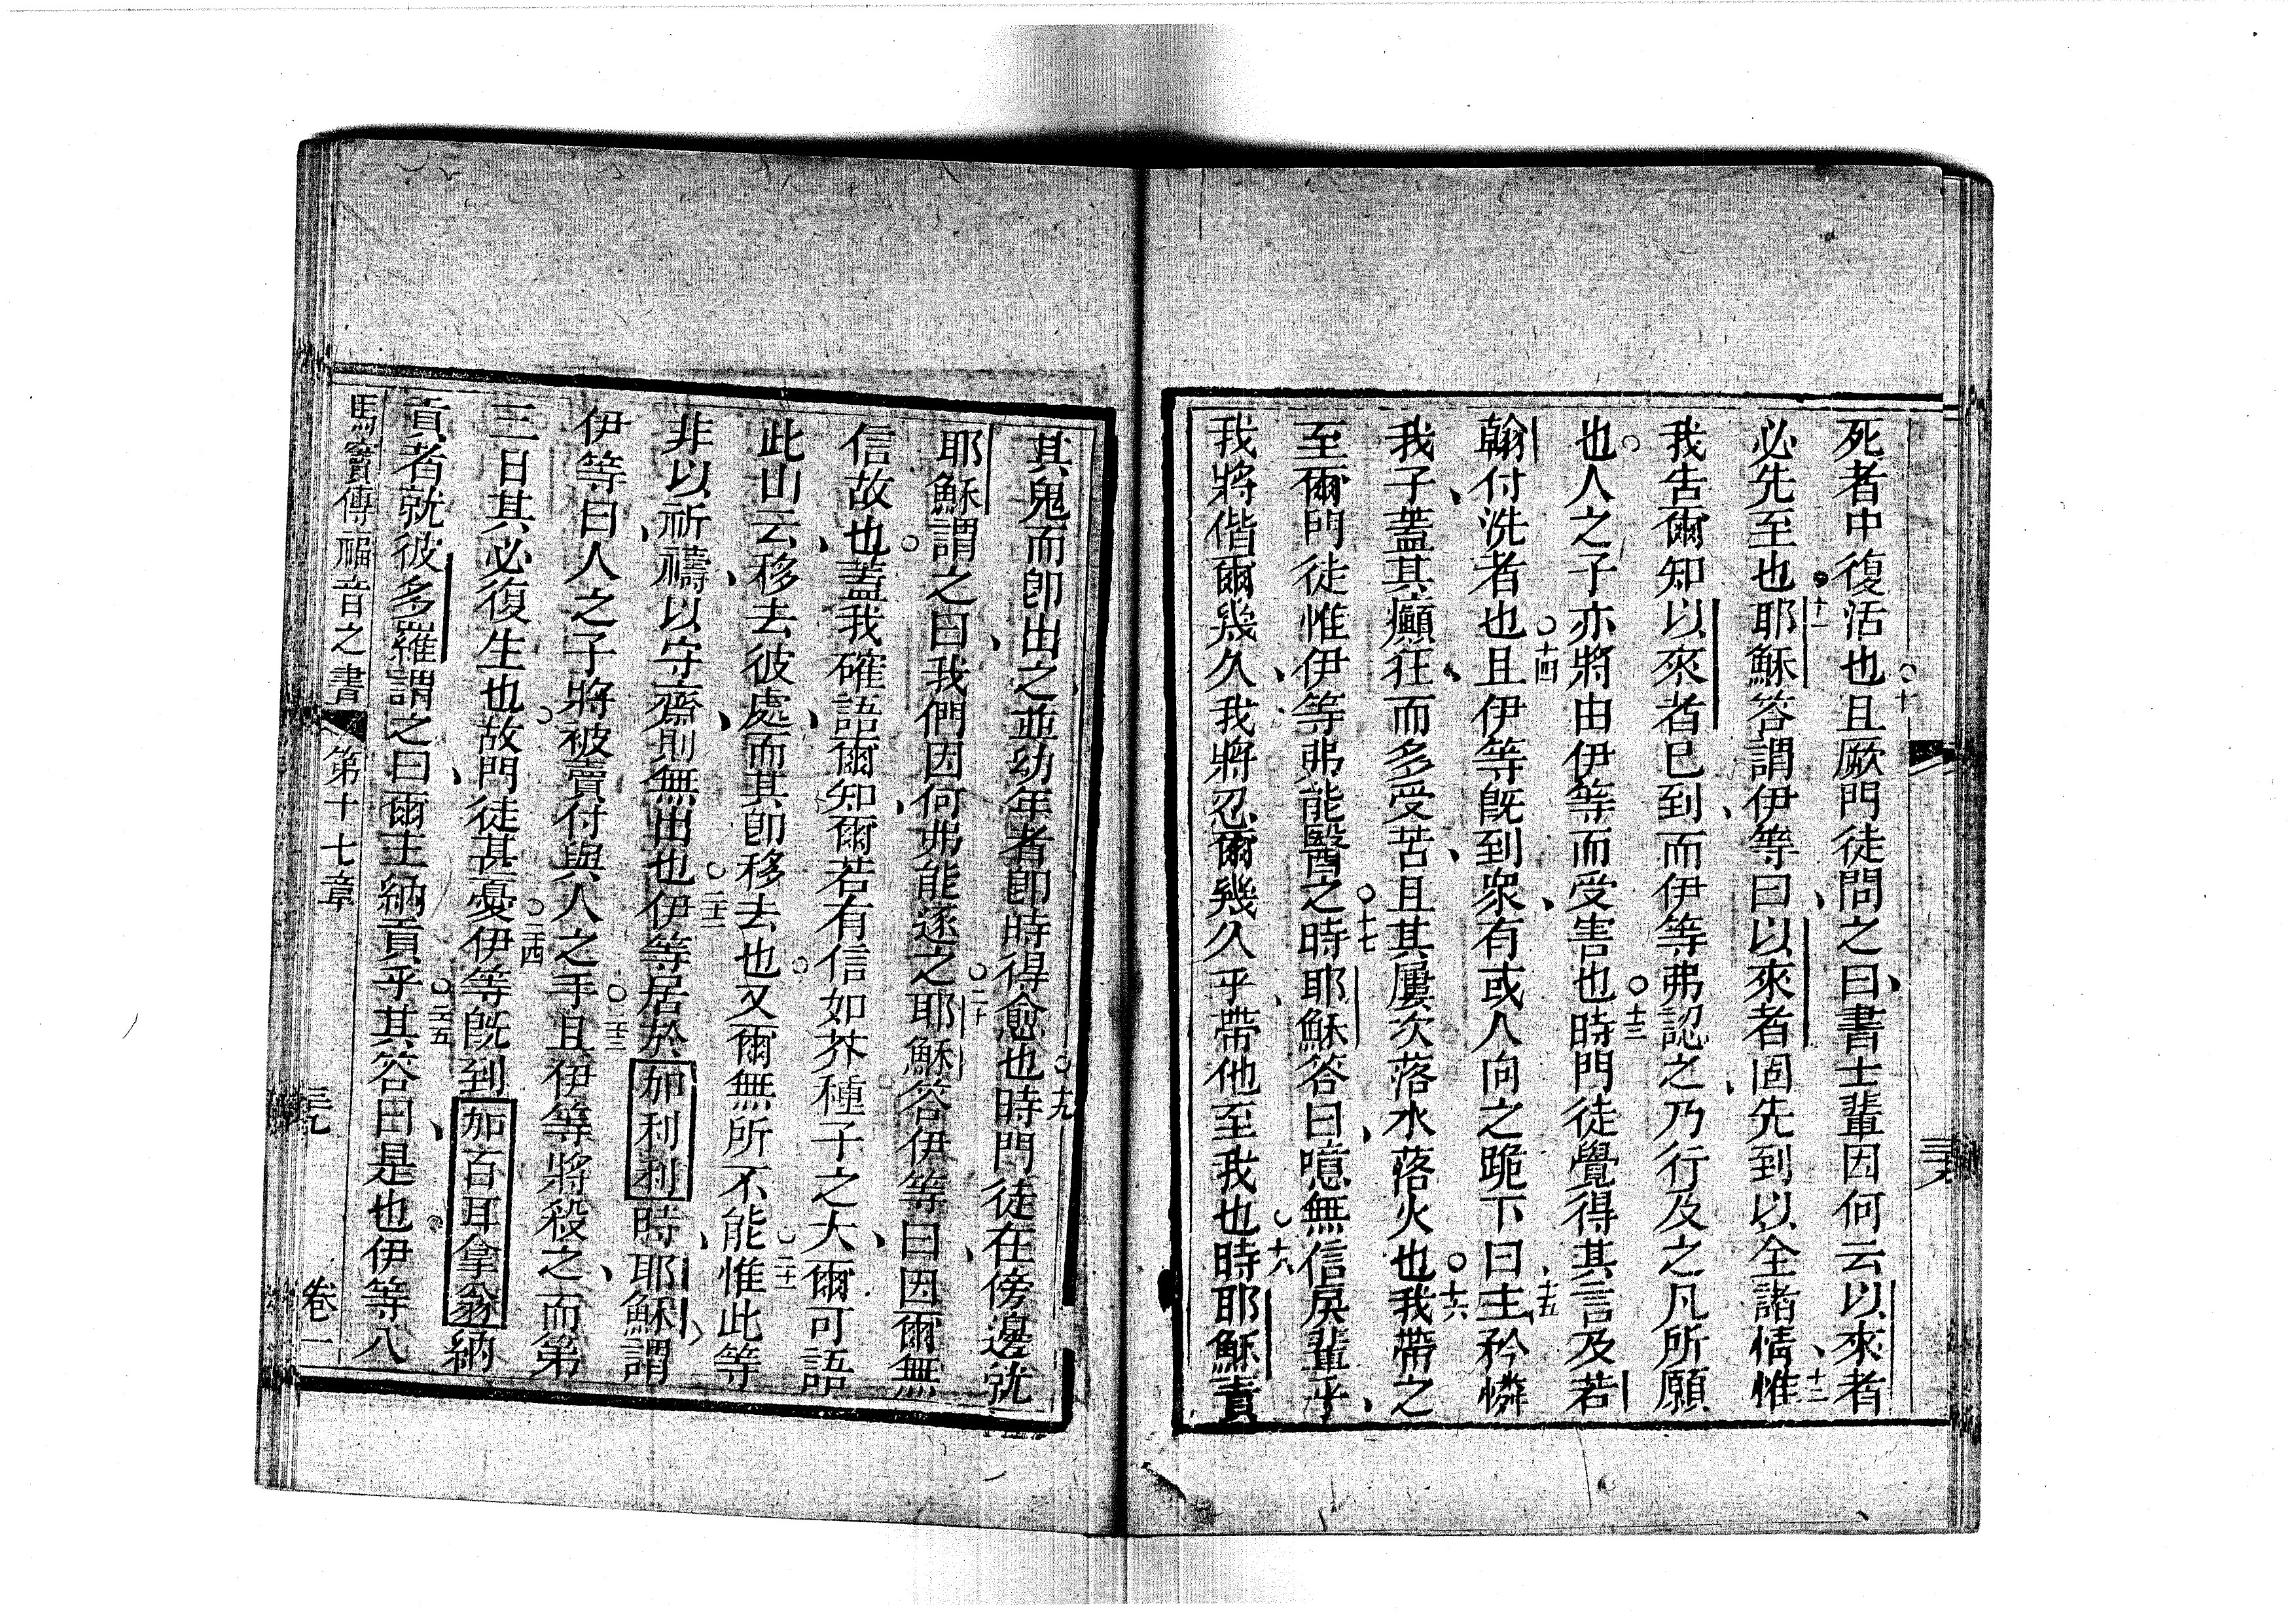 死者中復活也且厥門徒問之曰書士輩因何云以來者
必先至也耶穌答謂伊等曰以來者固先到以全諸情惟
我吿爾知以來者已到而伊等弗認之乃行及之凡所願
也人之子亦將由伊等而受害也時門徒覺得其言及若
翰付洗者也且伊等旣到衆有或人向之跪下曰主矜憐
我子蓋其癲狂而多受苦且其屢次落水落火也我帶之
至爾門徒惟伊等弗能醫之時耶穌答曰噫無信戾輩乎
我將偕爾幾久我將忍爾幾久乎帶他至我也時耶穌責
其鬼而卽出之並幼年者卽時得愈也時門徒在傍邊就
耶穌謂之曰我們因何弗能逐之耶穌答伊等曰因爾無
信故也蓋我確語爾知爾若有信如芥種子之大爾可語
此山云移去彼處而其卽移去也又爾無所不能惟此等
非以祈禱以守齋則無出也伊等居於加利利時耶穌謂
伊等曰人之子將被賣付與人之手且伊等將殺之而第
三日其必復生也故門徒甚憂伊等旣到加百耳拿翁納
貢者就彼多羅謂之曰爾主納貢乎其答曰是也伊等入
馬竇傳福音之書 第十七章 三十九 卷一